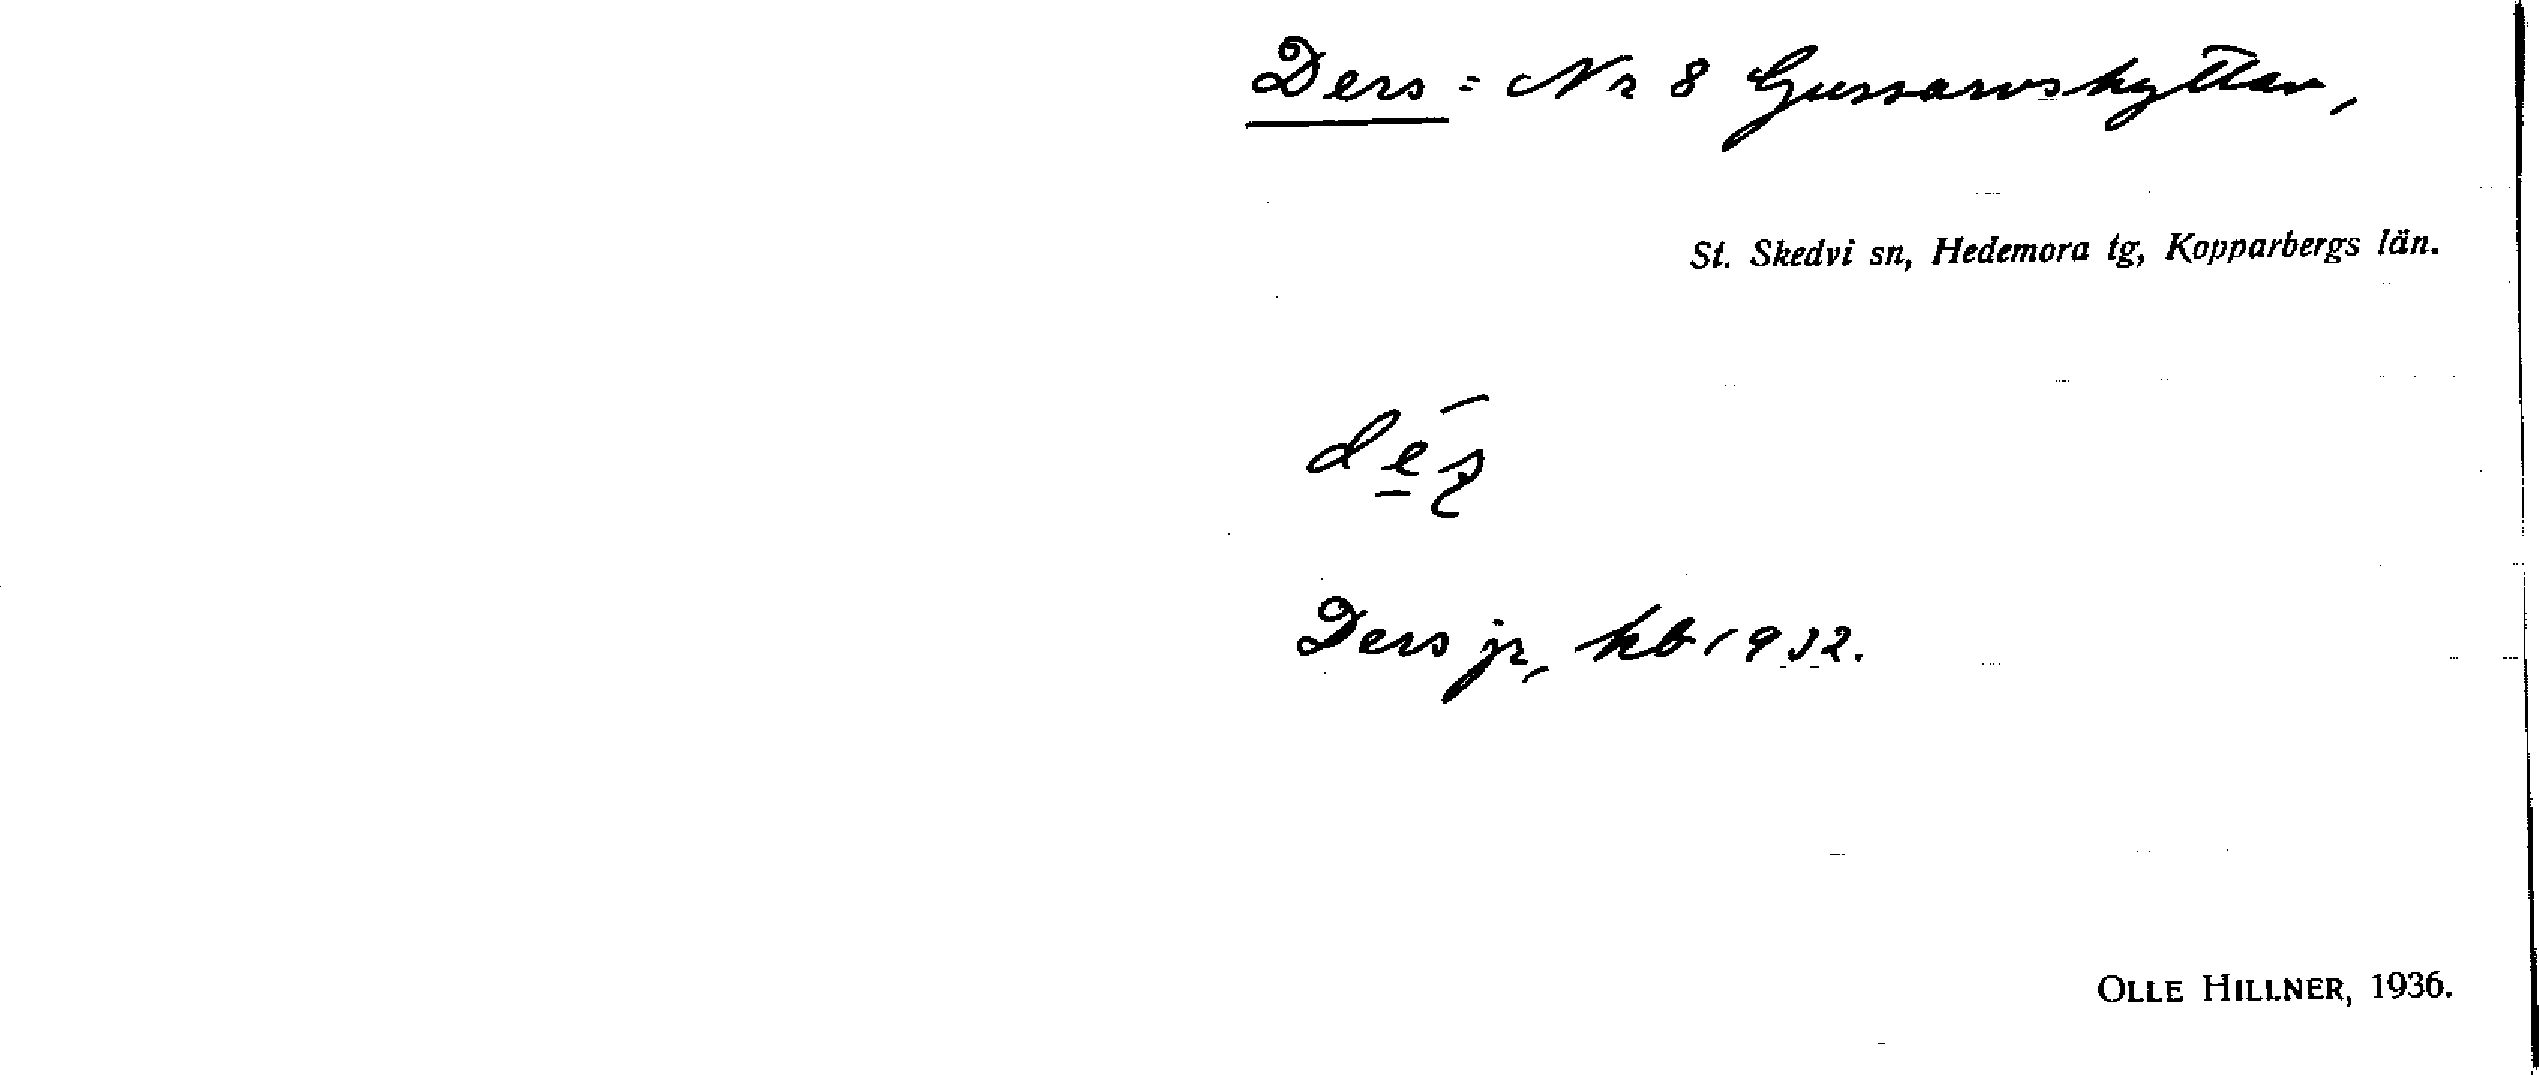 Ders = Nr 8 Gussarvshyttan,
St. Skedvi sn, Hedemora tg, Kopparbergs län.
Ders jr, kb 1932.
OLLE HILLNER, 1936.